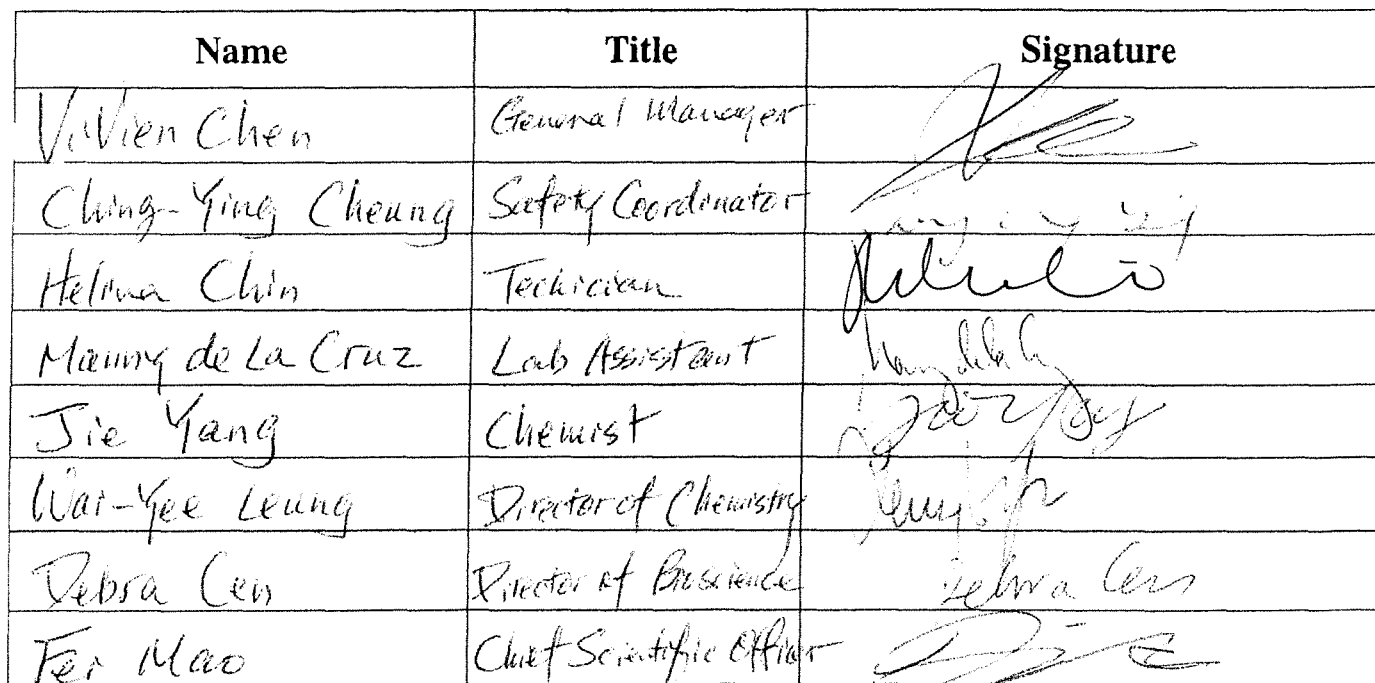 Name Title Signature
ViVien Chen General Manager
Ching-Ying Cheung Safety Coordinator
Helina Chin Techician
Manny de La Cruz Lab Assistant
Jie Yang Chemist
Wai-Yee Leung Director of Chemistry
Debra Cen Director of Bioscience Debra Cen
Fei Mao Chief Scientific Officer